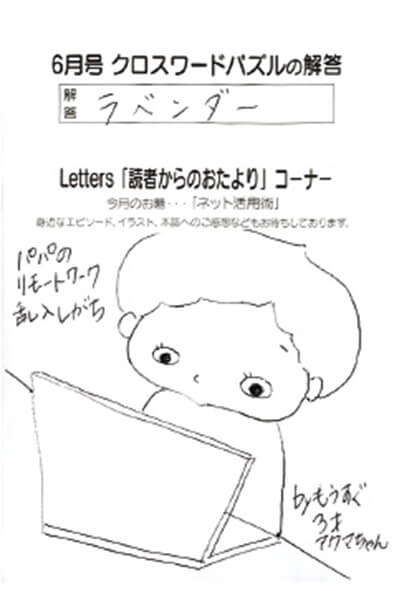 6月号 クロスワードパズルの解答
解答
ラベンダー
Letters「読者からのおたより」コーナー
今月のお題・・・「ネット活用術」
身近なエピソード、イラスト、本誌へのご感想などもお待ちしております。
パパの
リモートワーク
乱入しがち
byもうすぐ
3才
アクマちゃん